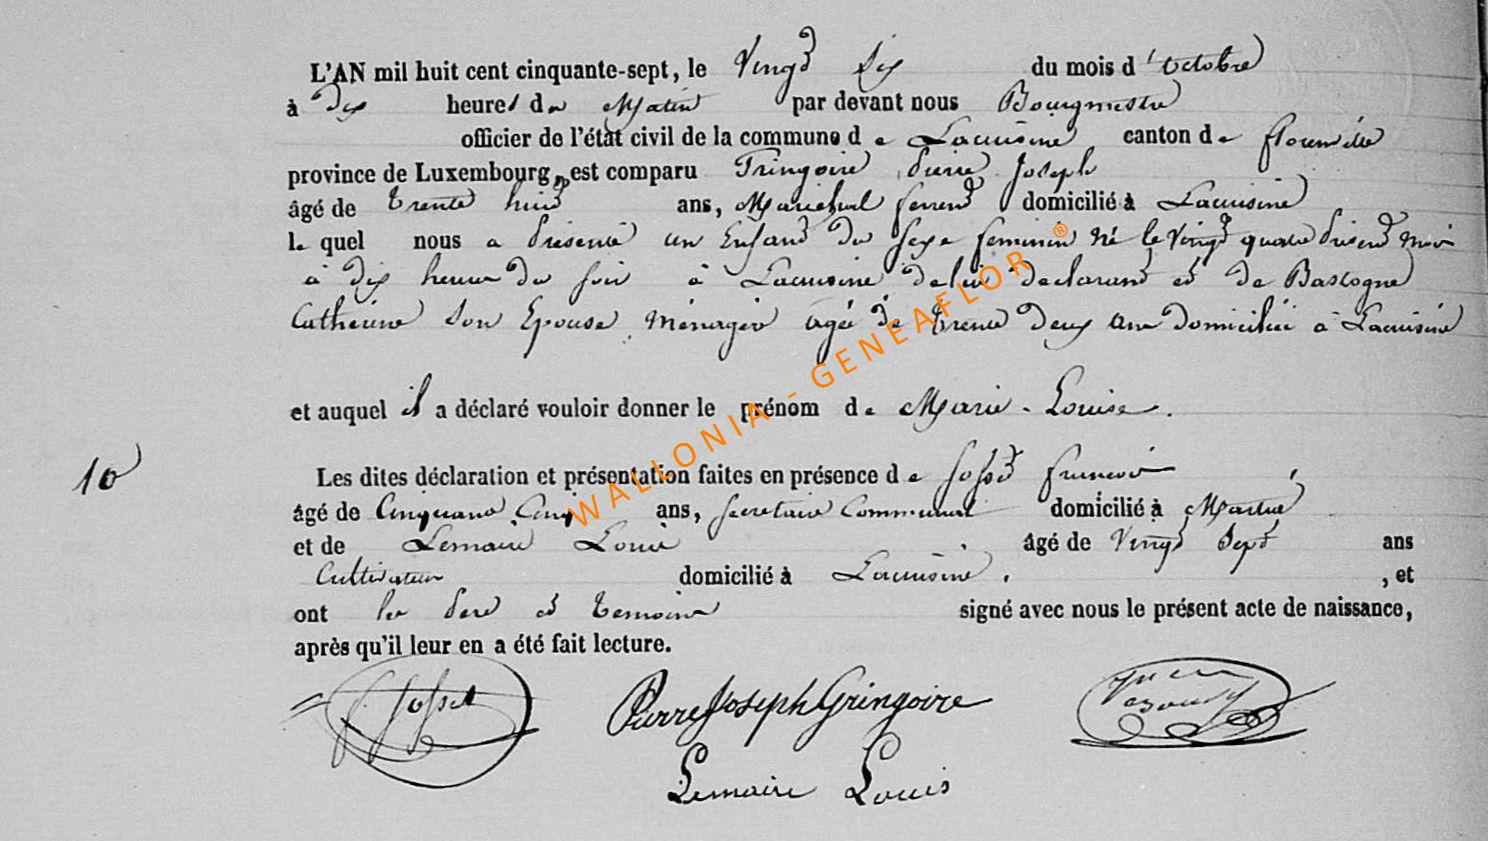 L'AN mil huit cent cinquante-sept, le vingt six du mois d'octobre
à dix heures du Matin par devant nous Bourgmestre
officier de l'état civil de la commune de Lacuisine canton de florenville
province de Luxembourg, est comparu Gringoire Pierre Joseph
âgé de trente huit ans, Marechal ferrent domicilié à Lacuisine
lequel nous a présenté un Enfant du sexe feminin né le vingt quatre présent mois
à dix heures du soir à Lacuisine de lui declarant et de Bastogne
Catherine son Epouse Menagère agée de trente deux ans domiciliée à Lacuisine
et auquel il a déclaré vouloir donner le prénom de Marie-Louise.
10
Les dites déclaration et présentation faites en présence de Josset francois
âgé de Cinquante Cinq ans, secretaire Communal domicilié à Martué
et de Lemaire Louis âgé de vingt sept ans
Cultivateur domicilié à Lacuisine, et
ont les pere et temoins signé avec nous le présent acte de naissance,
après qu'il leur en a été fait lecture.
Josset Pierre Joseph Gringoire
Lemaire Louis
WALLONIA - GENEAFLOR ®